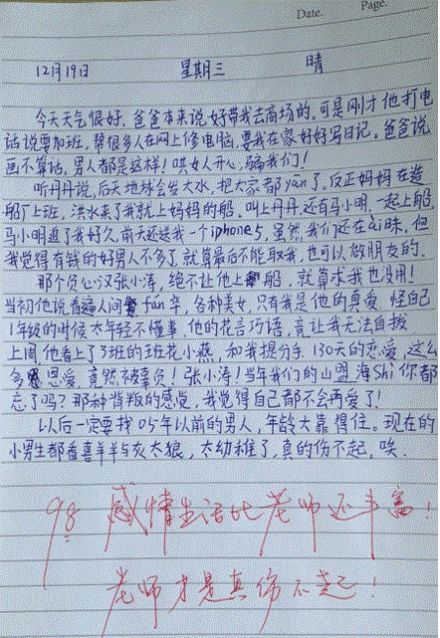 Date.
Page.
12月19日 星期三 晴
今天天气很好，爸爸本来说好带我去商场的。可是刚才他打电
话说要加班，帮很多人在网上修电脑，要我在家好好写日记。爸爸说
画不算话，男人都是这样！哄女人开心，骗我们！
听丹丹说，后天地球会发大水，把大家都yān了。反正妈妈在造
船厂上班，洪水来了我就上妈妈的船。叫上丹丹，还有马小明，一起上船。
马小明追了我好久，前天还送我一个iphone5，虽然我们还在ài昧，但
我觉得有钱的好男人不多了，就算最后不能取我，也可以做朋友的。
那个负心汉张小涛，绝不让他上船，就算求我也没用！
当初他说看遍人间fán华，各种美女，只有我是他的真爱。怪自己
1年级的时候太年轻不懂事，他的花言巧语，竟让我无法自拔
上周他看上了3班的班花小燕，和我提分手。130天的恋爱，这么
多恩爱，竟然被辜负！张小涛！当年我们的山盟海Shì你都
忘了吗？那种背叛的感觉，我觉得自己都不会再爱了！
以后一定要找05年以前的男人，年龄大靠得住。现在的
小男生都看喜羊羊与灰太狼，太幼稚了，真的伤不起，唉。
98 感情生活比老师还丰富！
老师才是真伤不起！